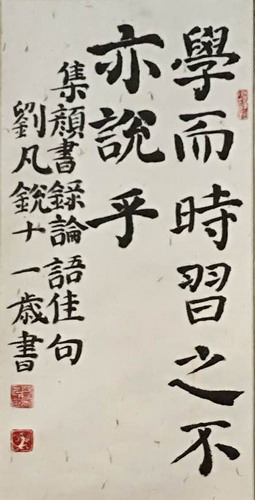 學而時習之不
亦說乎
集顏書錄論語佳句
劉凡銳十一歲書